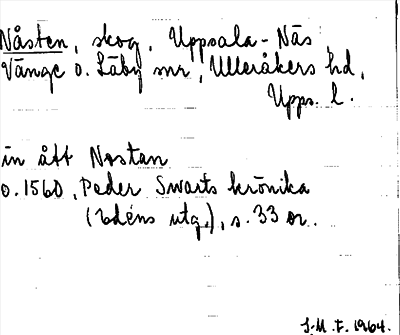 Nåsten, skog, Uppsala-Näs
Vänge o. Läby snr, Ulleråkers hd,
Upps. l.
inått Nostan
o. 1560, Peder Swarts krönika
(Edéns utg.), s. 33 or.
J.M.F. 1964.